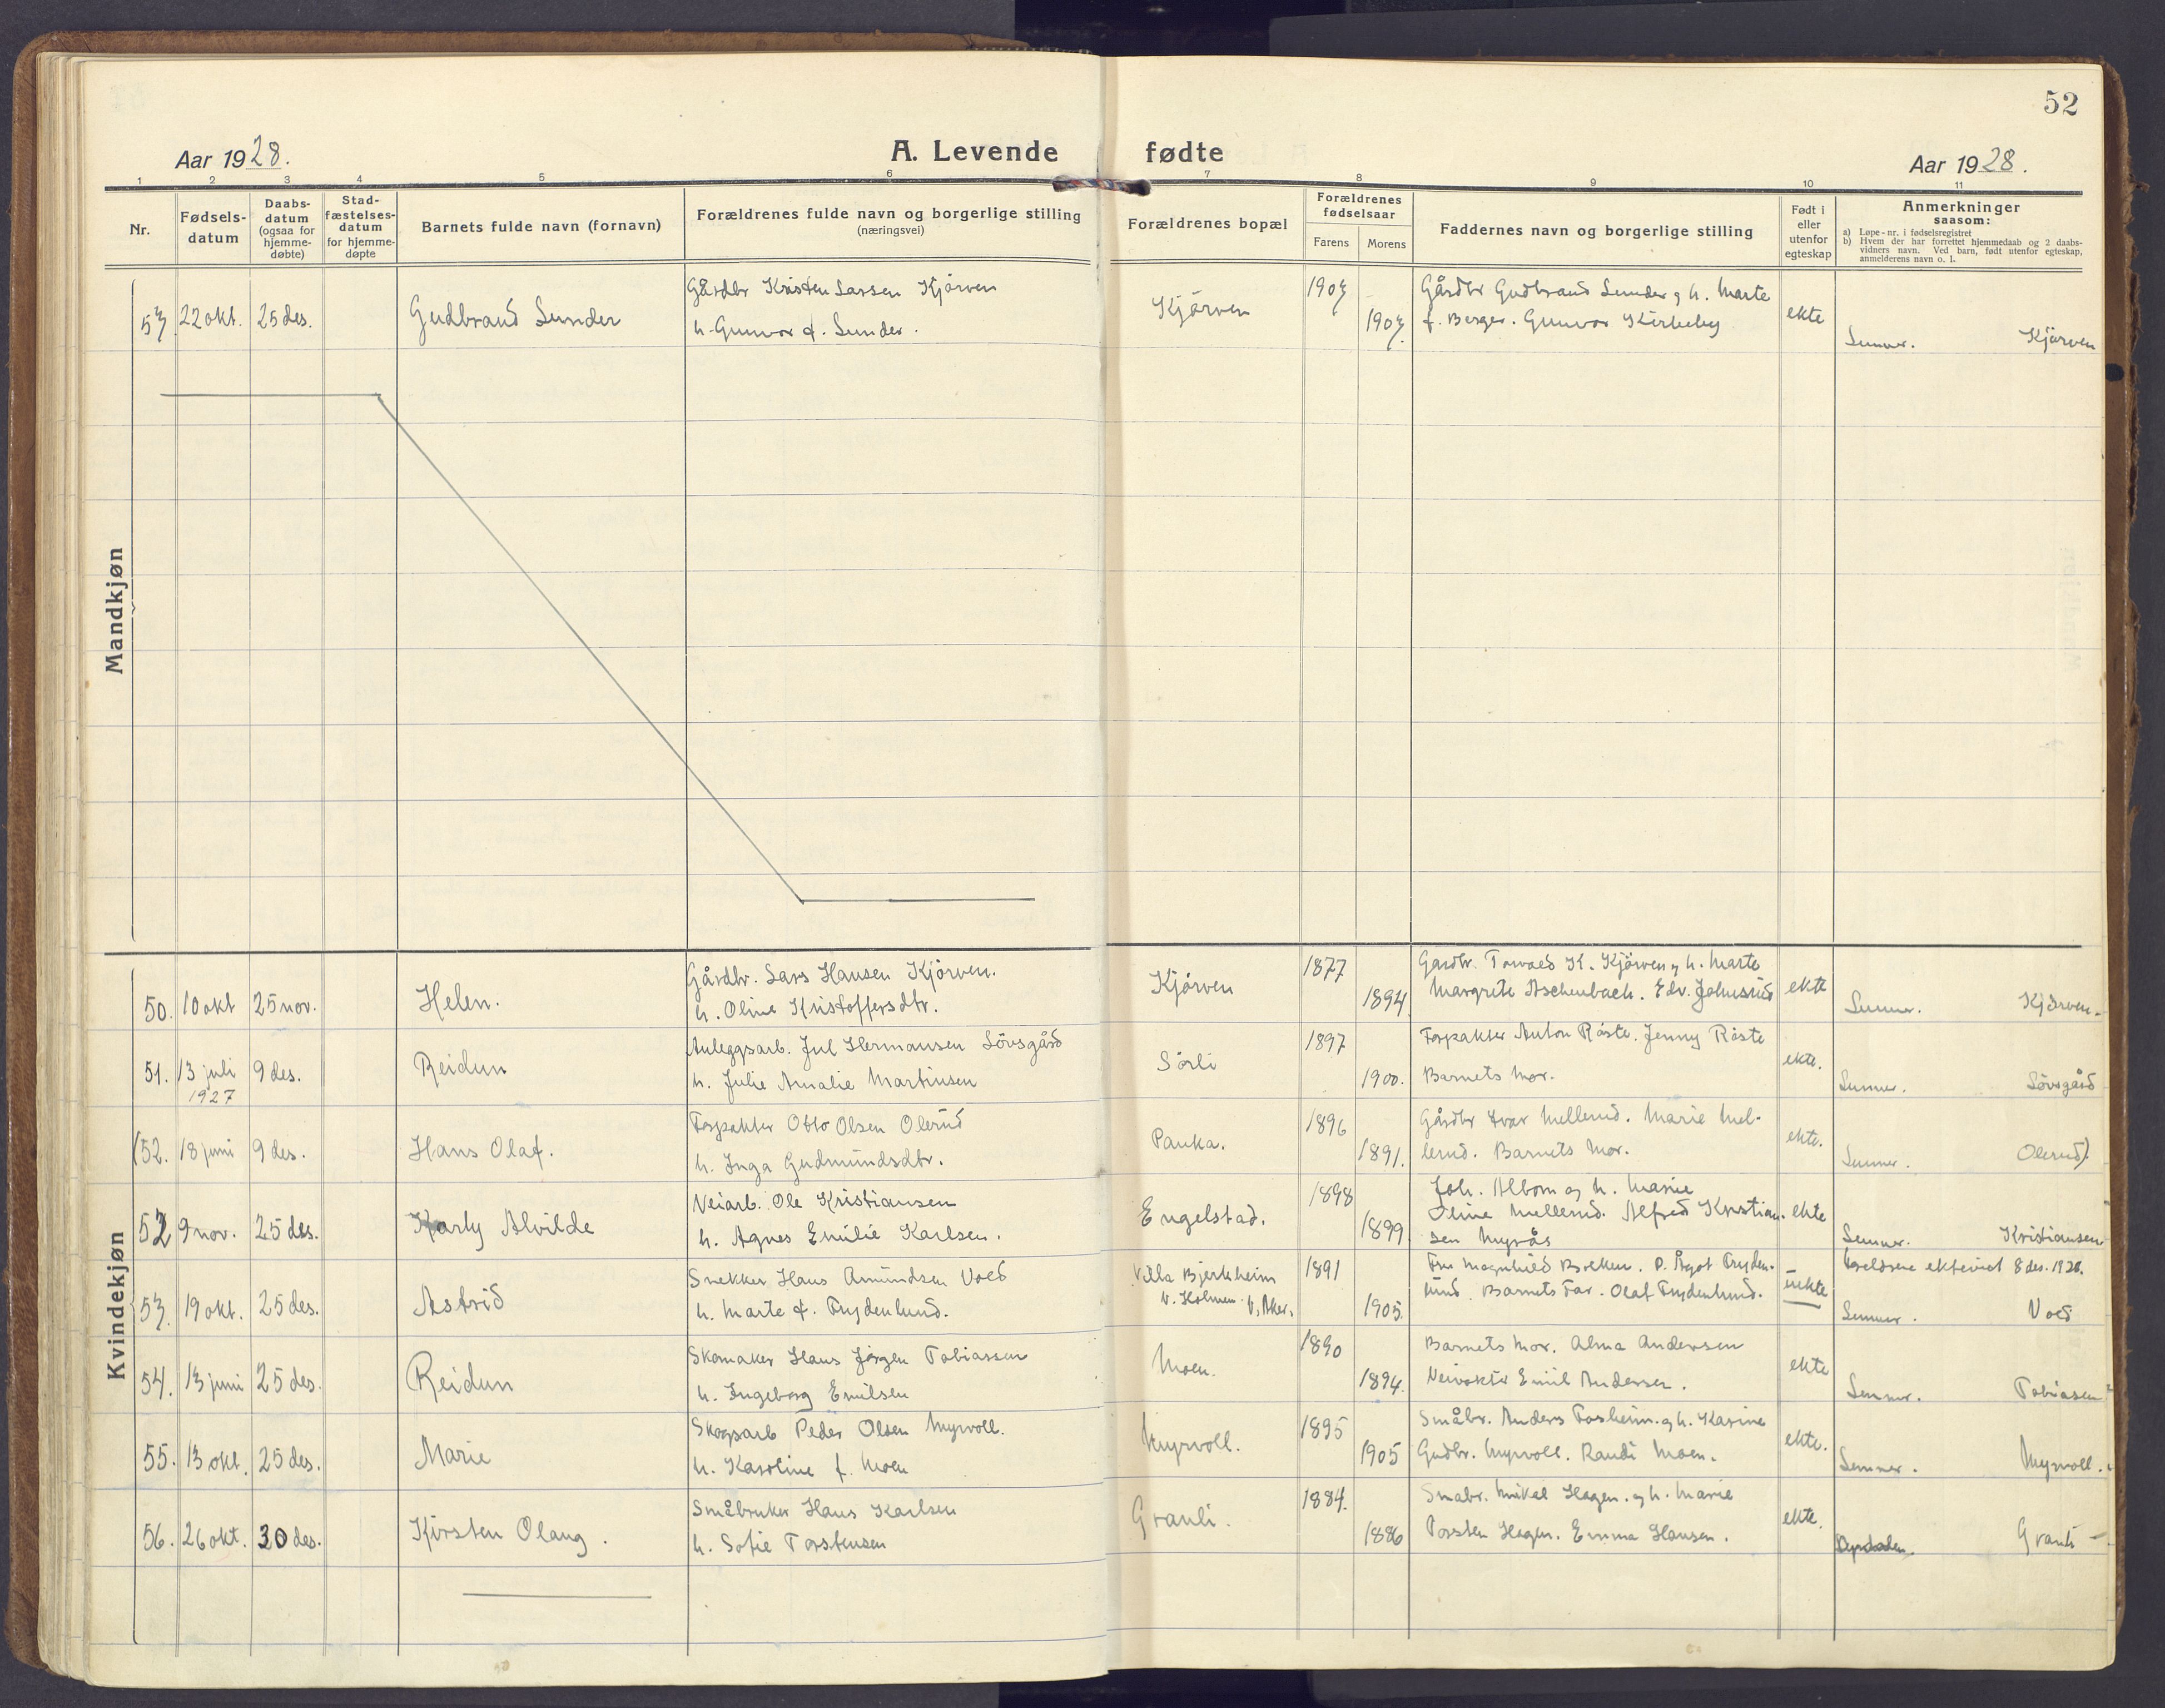 52
Aar 1928.
A. Levende fødte
Aar 1928.
1 2 3 4 5 6 7 8 9 10 11
Nr.
Fødsels-
datum
Daabs-
datum
(ogsaa for
hjemme-
døbte)
Stad-
fæstelses-
datum
for hjemme-
døpte
Barnets fulde navn (fornavn)
Forældrenes fulde navn og borgerlige stilling
(næringsvei)
Forældrenes bopæl
Forældrenes
fødselsaar
Farens Morens
Faddernes navn og borgerlige stilling
Født i
eller
utenfor
egteskap
Anmerkninger
saasom:
a) Løpe-nr. i fødselsregistret
b) Hvem der har forrettet hjemmedaab og 2 daabs-
vidners navn. Ved barn, født utenfor egteskap,
anmelderens navn o. l.
Mandkjøn
57. 22 okt. 25 des. Gudbrand Lunder
Gårdbr Kristen Larsen Kjörven
h. Gunvor f. Lunder.
Kjörven 1907 1907.
Gårdbr Gudbrand Lunder og h. Marte
f. Berger. Gunvor Kirkeby
ekte
Lunner. Kjörven
Kvindekjøn
50. 10 okt 25 nov. Helen.
Gårdbr. Lars Hansen Kjörven.
h. Oline Kristoffersdtr.
Kjörven 1877 1894
Gardbr. Torvald K. Kjörven og h. Marte
Margrete Aschenbach. Edv. Johnsrud
ekte
Lunner. Kjörven.
51. 13 juli 1927 9 des. Reidun
Anleggsarb. Jul Hermansen Lövsgård
h. Julie Amalie Martinsen
Sörli 1897 1900.
Forpakter Anton Råste. Jenny Råste
Barnets mor.
ekte.
Lunner. Lövsgård
(52. 18 juni 9 des. Hans Olaf.
Forpakter Otto Olsen Olerud
h. Inga Gudmundsdtr.
Pauka. 1896 1891.
Gårdbr Ivar Mellerud. Marie Mel-
lerud. Barnets mor.
ekte.
Lunner. Olerud).
52 9 nov. 25 des. Karly Alvilde
Veiarb. Ole Kristiansen
h. Agnes Emilie Karlsen.
Engelstad. 1898 1899
Joh. Albom og h. Marie
Oline Mellerud. Alfred Kristian-
sen Myrås
ekte
Lunner. Kristiansen
53. 19 okt. 25 des. Astrid
Snekker Hans Amundsen Vold
h. Marte f. Frydenlund.
Villa Bjerkheim
v. Holmen V. Aker. 1891 1905.
Fru Magnhild Breken. P. Ågot Fryden-
lund. Barnets far. Olaf Frydenlund.
uekte
Foreldrene ekteviet 8 des. 1928.
Lunner. Vold
54. 13 juni 25 des. Reidun
Skomaker Hans Jörgen Tobiassen
h. Ingeborg Emilsen
Moen. 1890 1894.
Barnets mor. Alma Andersen
Veivokter Emil Andersen.
ekte
Lunner. Tobiasen
55. 13 okt. 25 des. Marie
Skogsarb Peder Olsen Myrvoll.
h. Karoline f. Moen
Myrvoll. 1895 1905
Småbr. Anders Forsheim. og h. Karine
Gudbr. Myrvoll. Randi Moen.
ekte.
Lunner. Myrvoll.
56. 26 okt. 30 des. Kirsten Olaug.
Småbruker Hans Karlsen
h. Sofie Torstensen
Granli. 1884. 1886
Småbr. Mikal Hagen. og h. Marie
Torsten Hagen. Emma Hansen.
ekte.
Granli